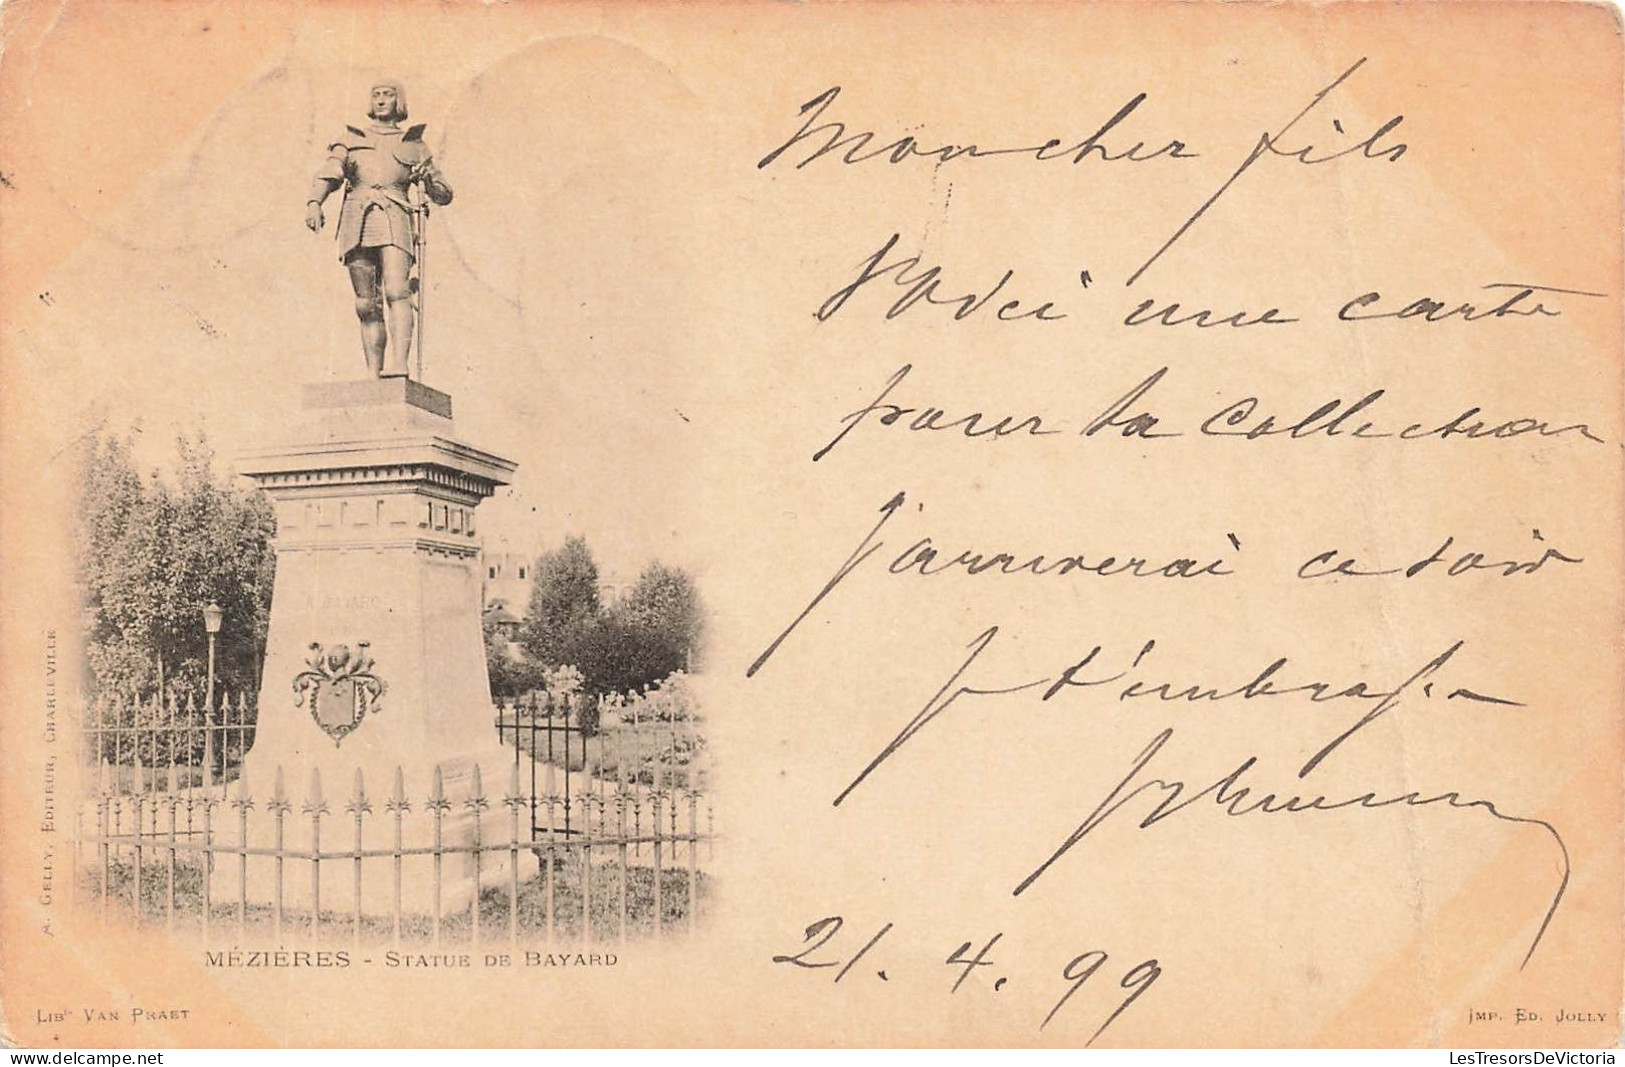 Mon cher fils
Voici une carte
pour ta collection
j'arriverai ce soir
je t'embrasse
21. 4. 99
A BAYARD
MÉZIÈRES - STATUE DE BAYARD
A. GELLY, EDITEUR, CHARLEVILLE
LIB<sup>ie</sup> VAN PRAET
IMP. ED. JOLLY
LesTresorsDeVictoria